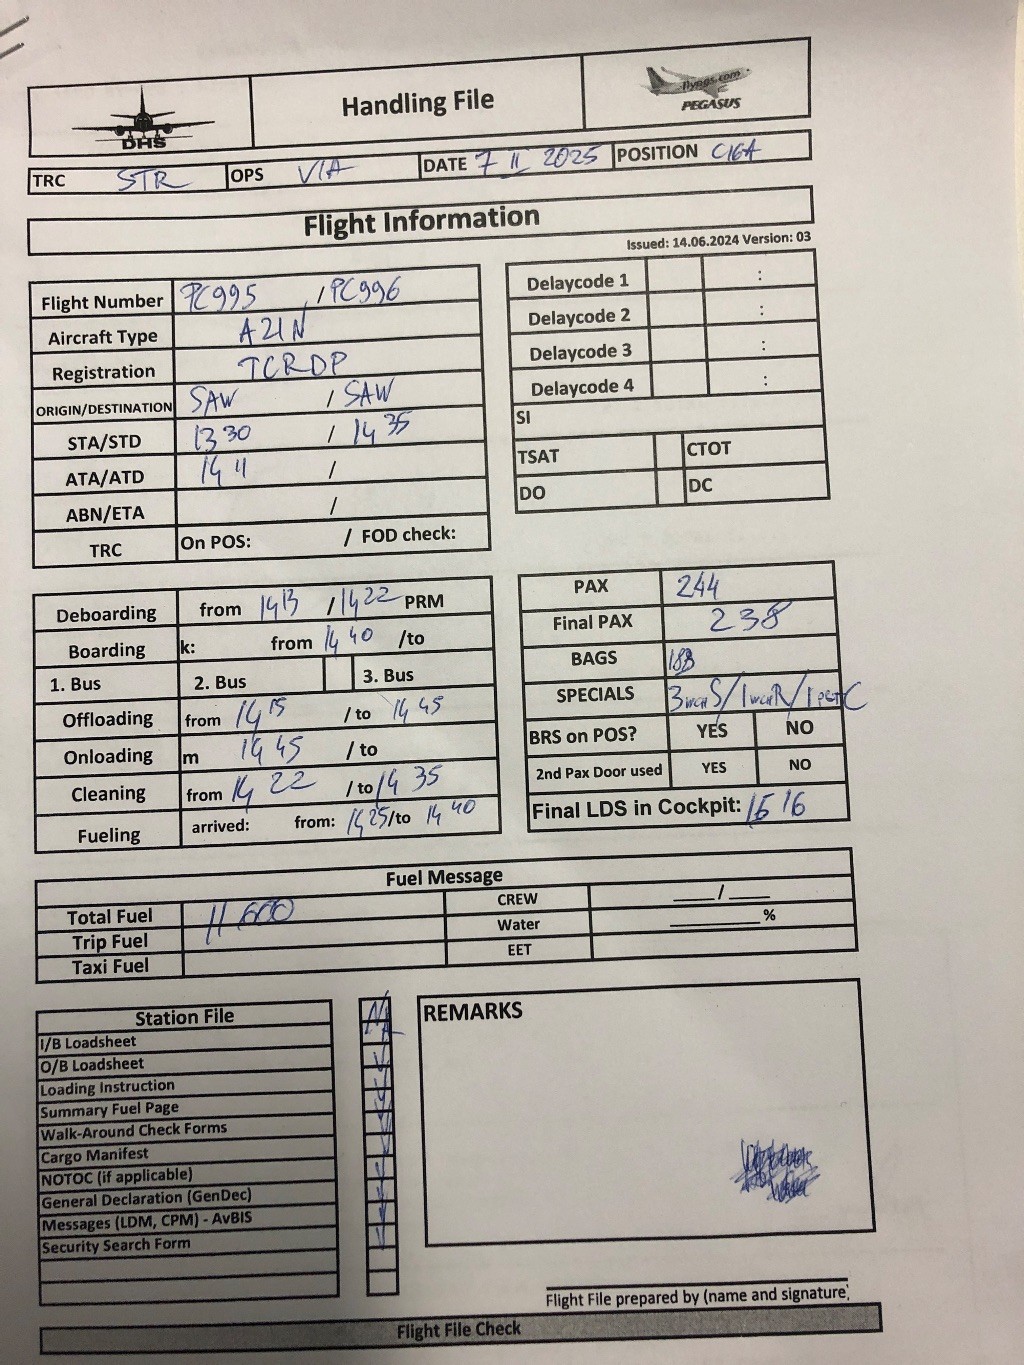 DHS
Handling File
flypgs.com
PEGASUS
TRC STR OPS VIA DATE 7 II 2025 POSITION C16A
Flight Information
Issued: 14.06.2024 Version: 03
Flight Number PC995 / PC996
Aircraft Type A21N
Registration TCRDP
ORIGIN/DESTINATION SAW / SAW
STA/STD 13 30 / 14 35
ATA/ATD 14 11 /
ABN/ETA /
TRC On POS: / FOD check:
Delaycode 1 :
Delaycode 2 :
Delaycode 3 :
Delaycode 4 :
SI
TSAT CTOT
DO DC
Deboarding from 14 13 / 14 22 PRM
Boarding k: from 14 40 /to
1. Bus 2. Bus 3. Bus
Offloading from 14 15 / to 14 45
Onloading m 14 45 / to
Cleaning from 14 22 / to 14 35
Fueling arrived: from: 14 25 /to 14 40
PAX 244
Final PAX 238
BAGS
SPECIALS 3 wchS / 1 wchR / 1 petC
BRS on POS? YES NO
2nd Pax Door used YES NO
Final LDS in Cockpit: 15 16
Fuel Message
Total Fuel 11 600 CREW ____/____
Trip Fuel Water ________%
Taxi Fuel EET
Station File
I/B Loadsheet N/A
O/B Loadsheet
Loading Instruction
Summary Fuel Page
Walk-Around Check Forms
Cargo Manifest
NOTOC (if applicable)
General Declaration (GenDec)
Messages (LDM, CPM) - AvBIS
Security Search Form
REMARKS
Flight File prepared by (name and signature)
Flight File Check